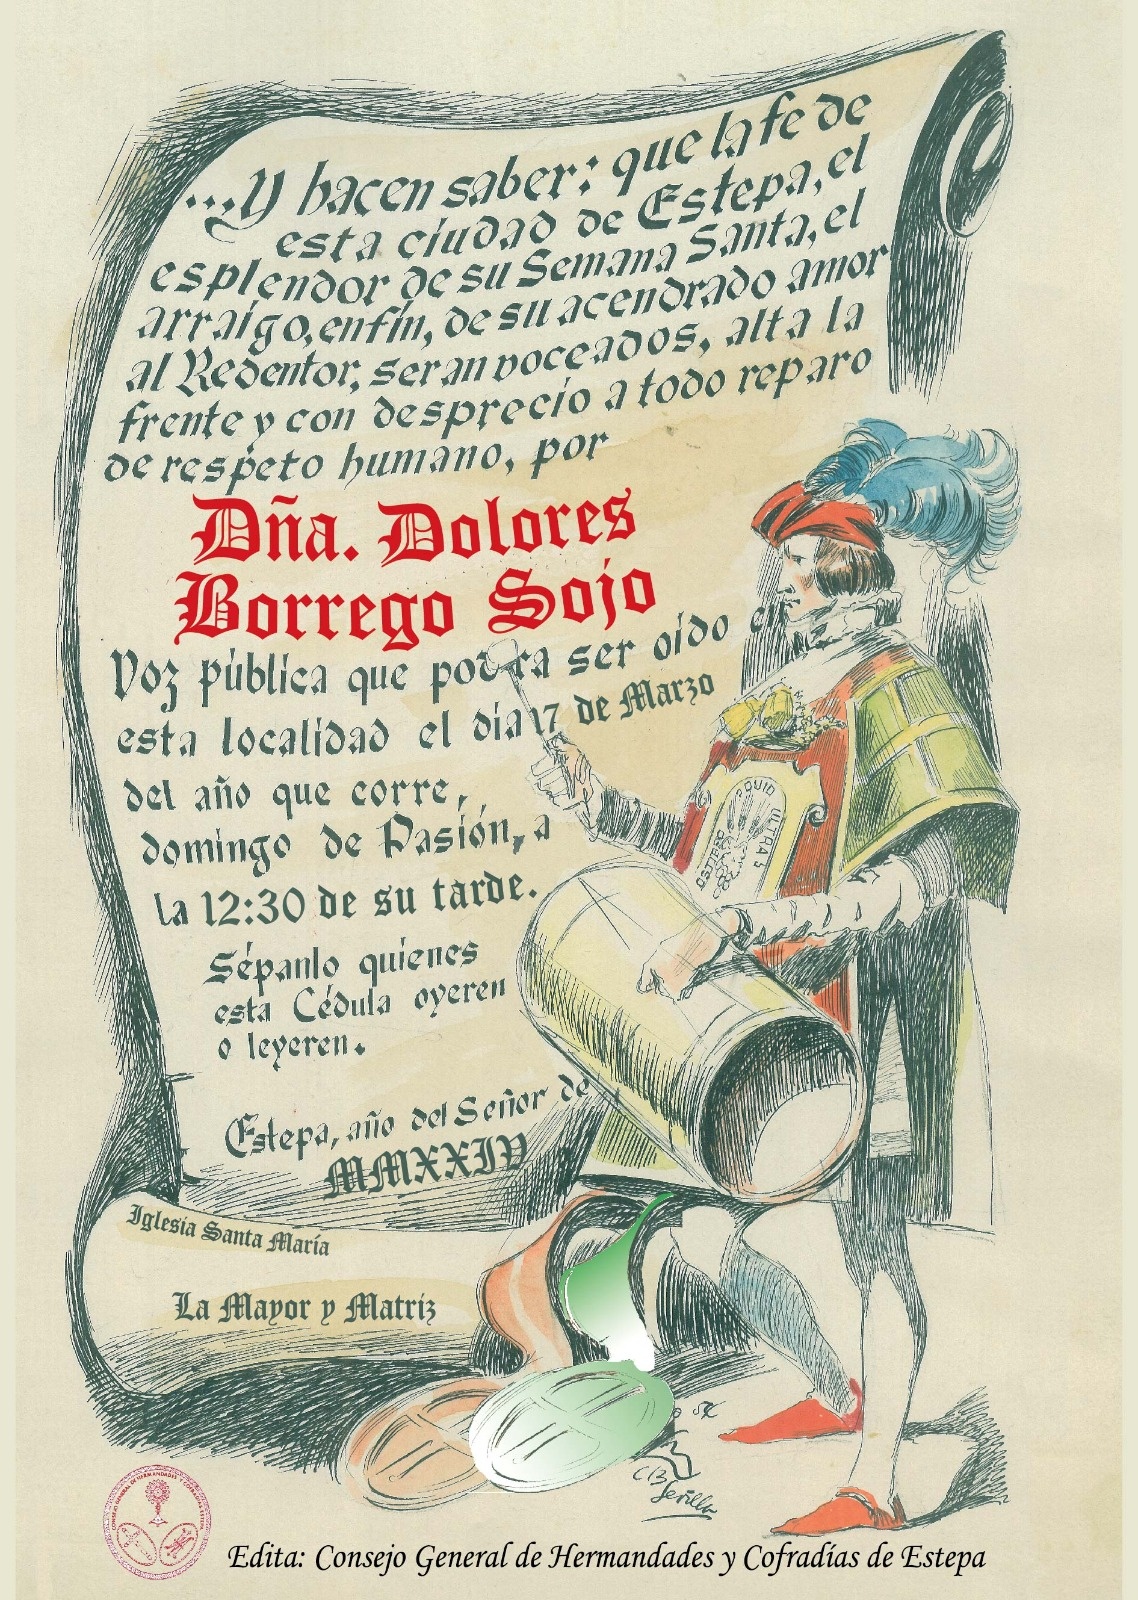 ...Y hacen saber: que la fe de
esta ciudad de Estepa, el
esplendor de su Semana Santa, el
arraigo, enfin, de su acendrado amor
al Redentor, seran voceados, alta la
frente y con desprecio a todo reparo
de respeto humano, por
Dña. Dolores
Borrego Sojo
Voz pública que podra ser oido
esta localidad el dia 17 de Marzo
del año que corre,
domingo de Pasión, a
la 12:30 de su tarde.
Sépanlo quienes
esta Cédula oyeren
o leyeren.
Estepa, año del Señor de
MMXXIV
Iglesia Santa María
La Mayor y Matriz
QUID ULTRA
Sevilla
Edita: Consejo General de Hermandades y Cofradías de Estepa